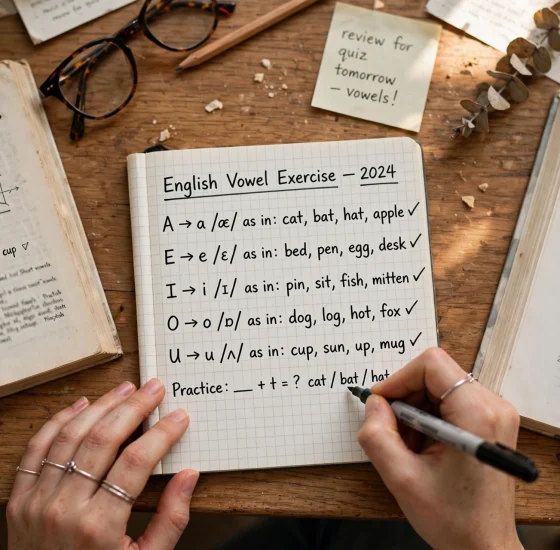 review for
quiz
tomorrow
– vowels!
English Vowel Exercise – 2024
A → a /æ/ as in: cat, bat, hat, apple ✓
E → e /ɛ/ as in: bed, pen, egg, desk ✓
I → i /ɪ/ as in: pin, sit, fish, mitten ✓
O → o /ɒ/ as in: dog, log, hot, fox ✓
U → u /ʌ/ as in: cup, sun, up, mug ✓
Practice: __ + t = ? cat / bat / hat
cup ♡